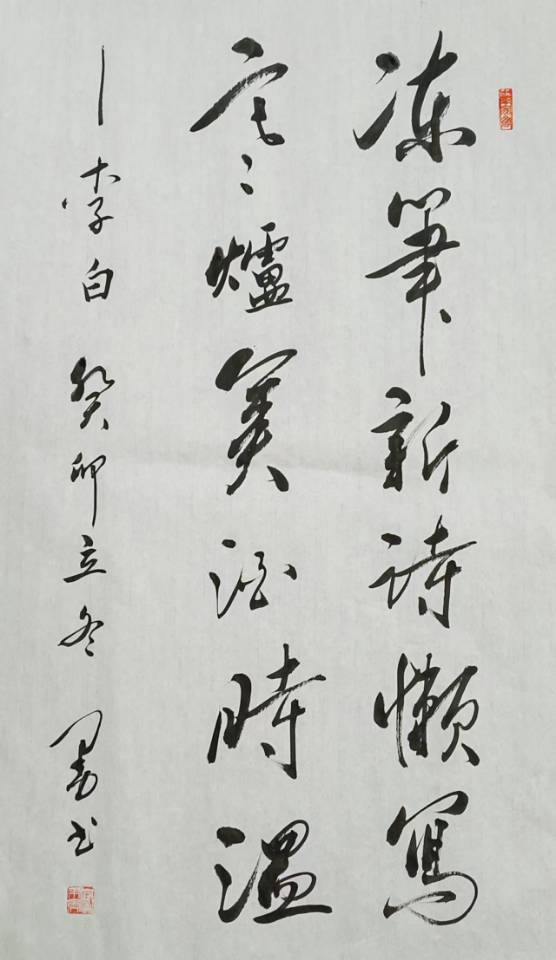 凍筆新詩懶寫
寒爐美酒時溫
—李白 癸卯立冬 书